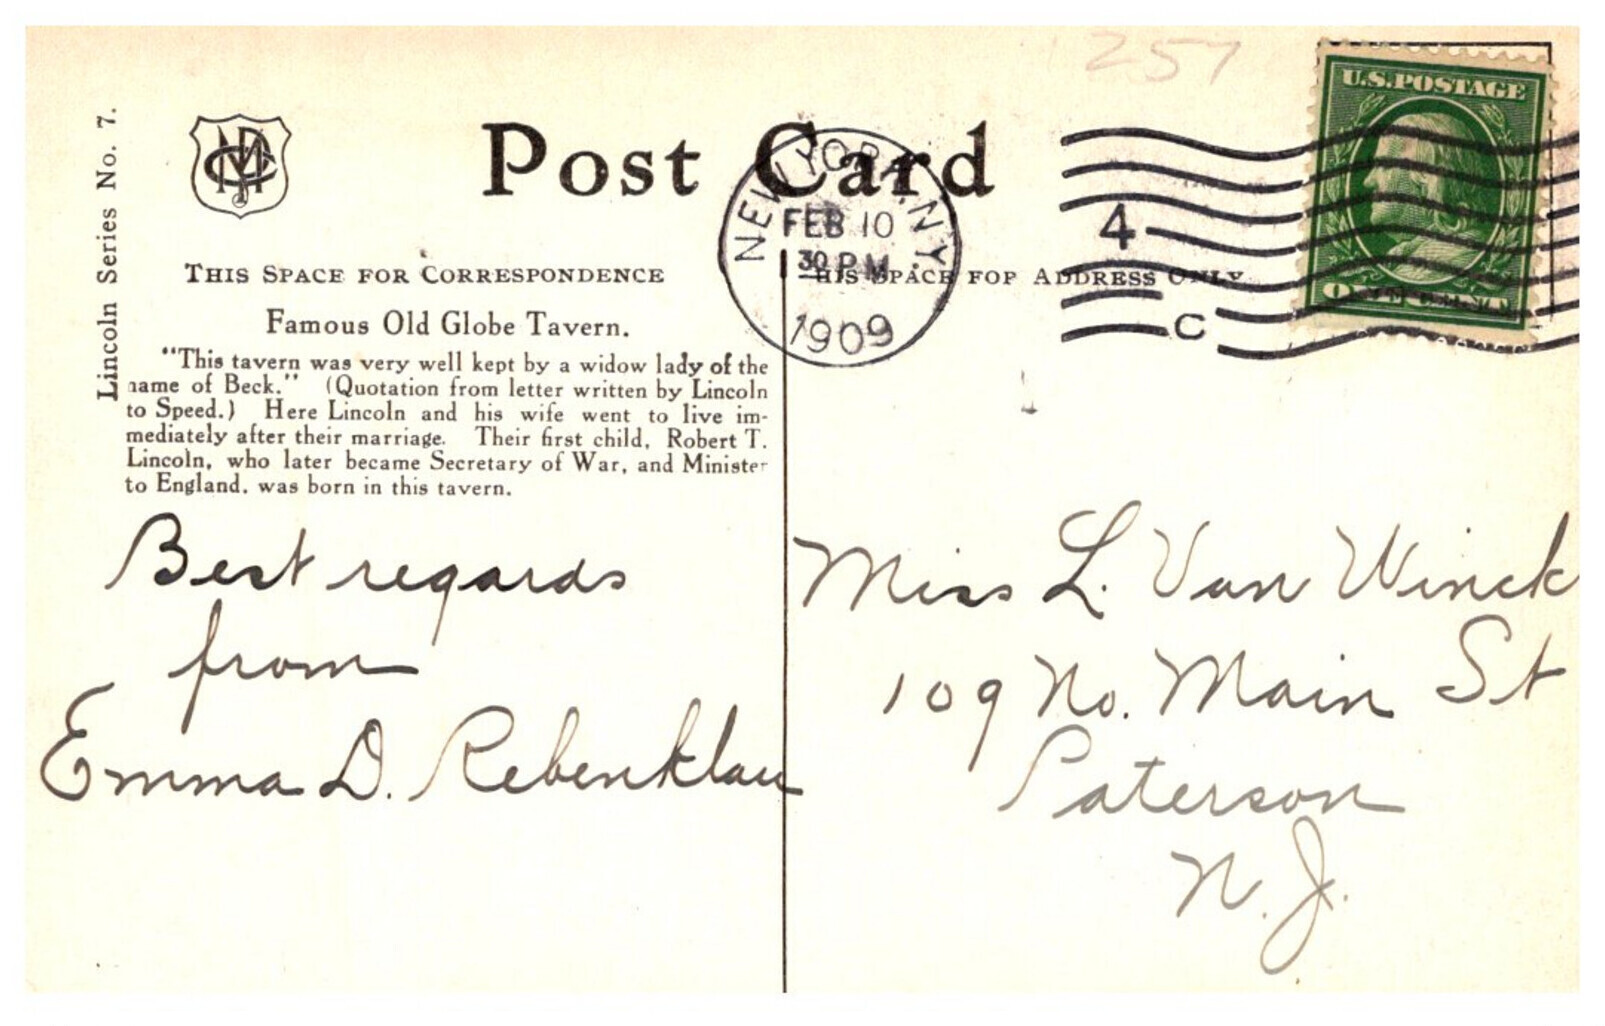 257
U.S. POSTAGE
ONE CENT
Lincoln Series No. 7.
Post Card
NEW YORK, N.Y.
FEB 10
30 PM
1909
4
C
THIS SPACE FOR CORRESPONDENCE
THIS SPACE FOR ADDRESS ONLY
Famous Old Globe Tavern.
"This tavern was very well kept by a widow lady of the
name of Beck." (Quotation from letter written by Lincoln
to Speed.) Here Lincoln and his wife went to live im-
mediately after their marriage. Their first child, Robert T.
Lincoln, who later became Secretary of War, and Minister
to England, was born in this tavern.
Best regards
from
Emma D. Rebenklau
Miss L. Van Winck
109 No. Main St
Paterson
N. J.